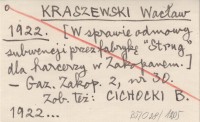 KRASZEWSKI Wacław
1922. [W sprawie odmowy
subwencji przez fabrykę "Strug"
dla harcerzy w Zakopanem.]
- Gaz. Zakop. 2, nr 30.
Zob. Też: CICHOCKI B.
1922...